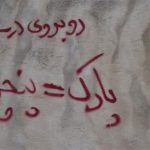 روبروی درب
پارک = پنچ